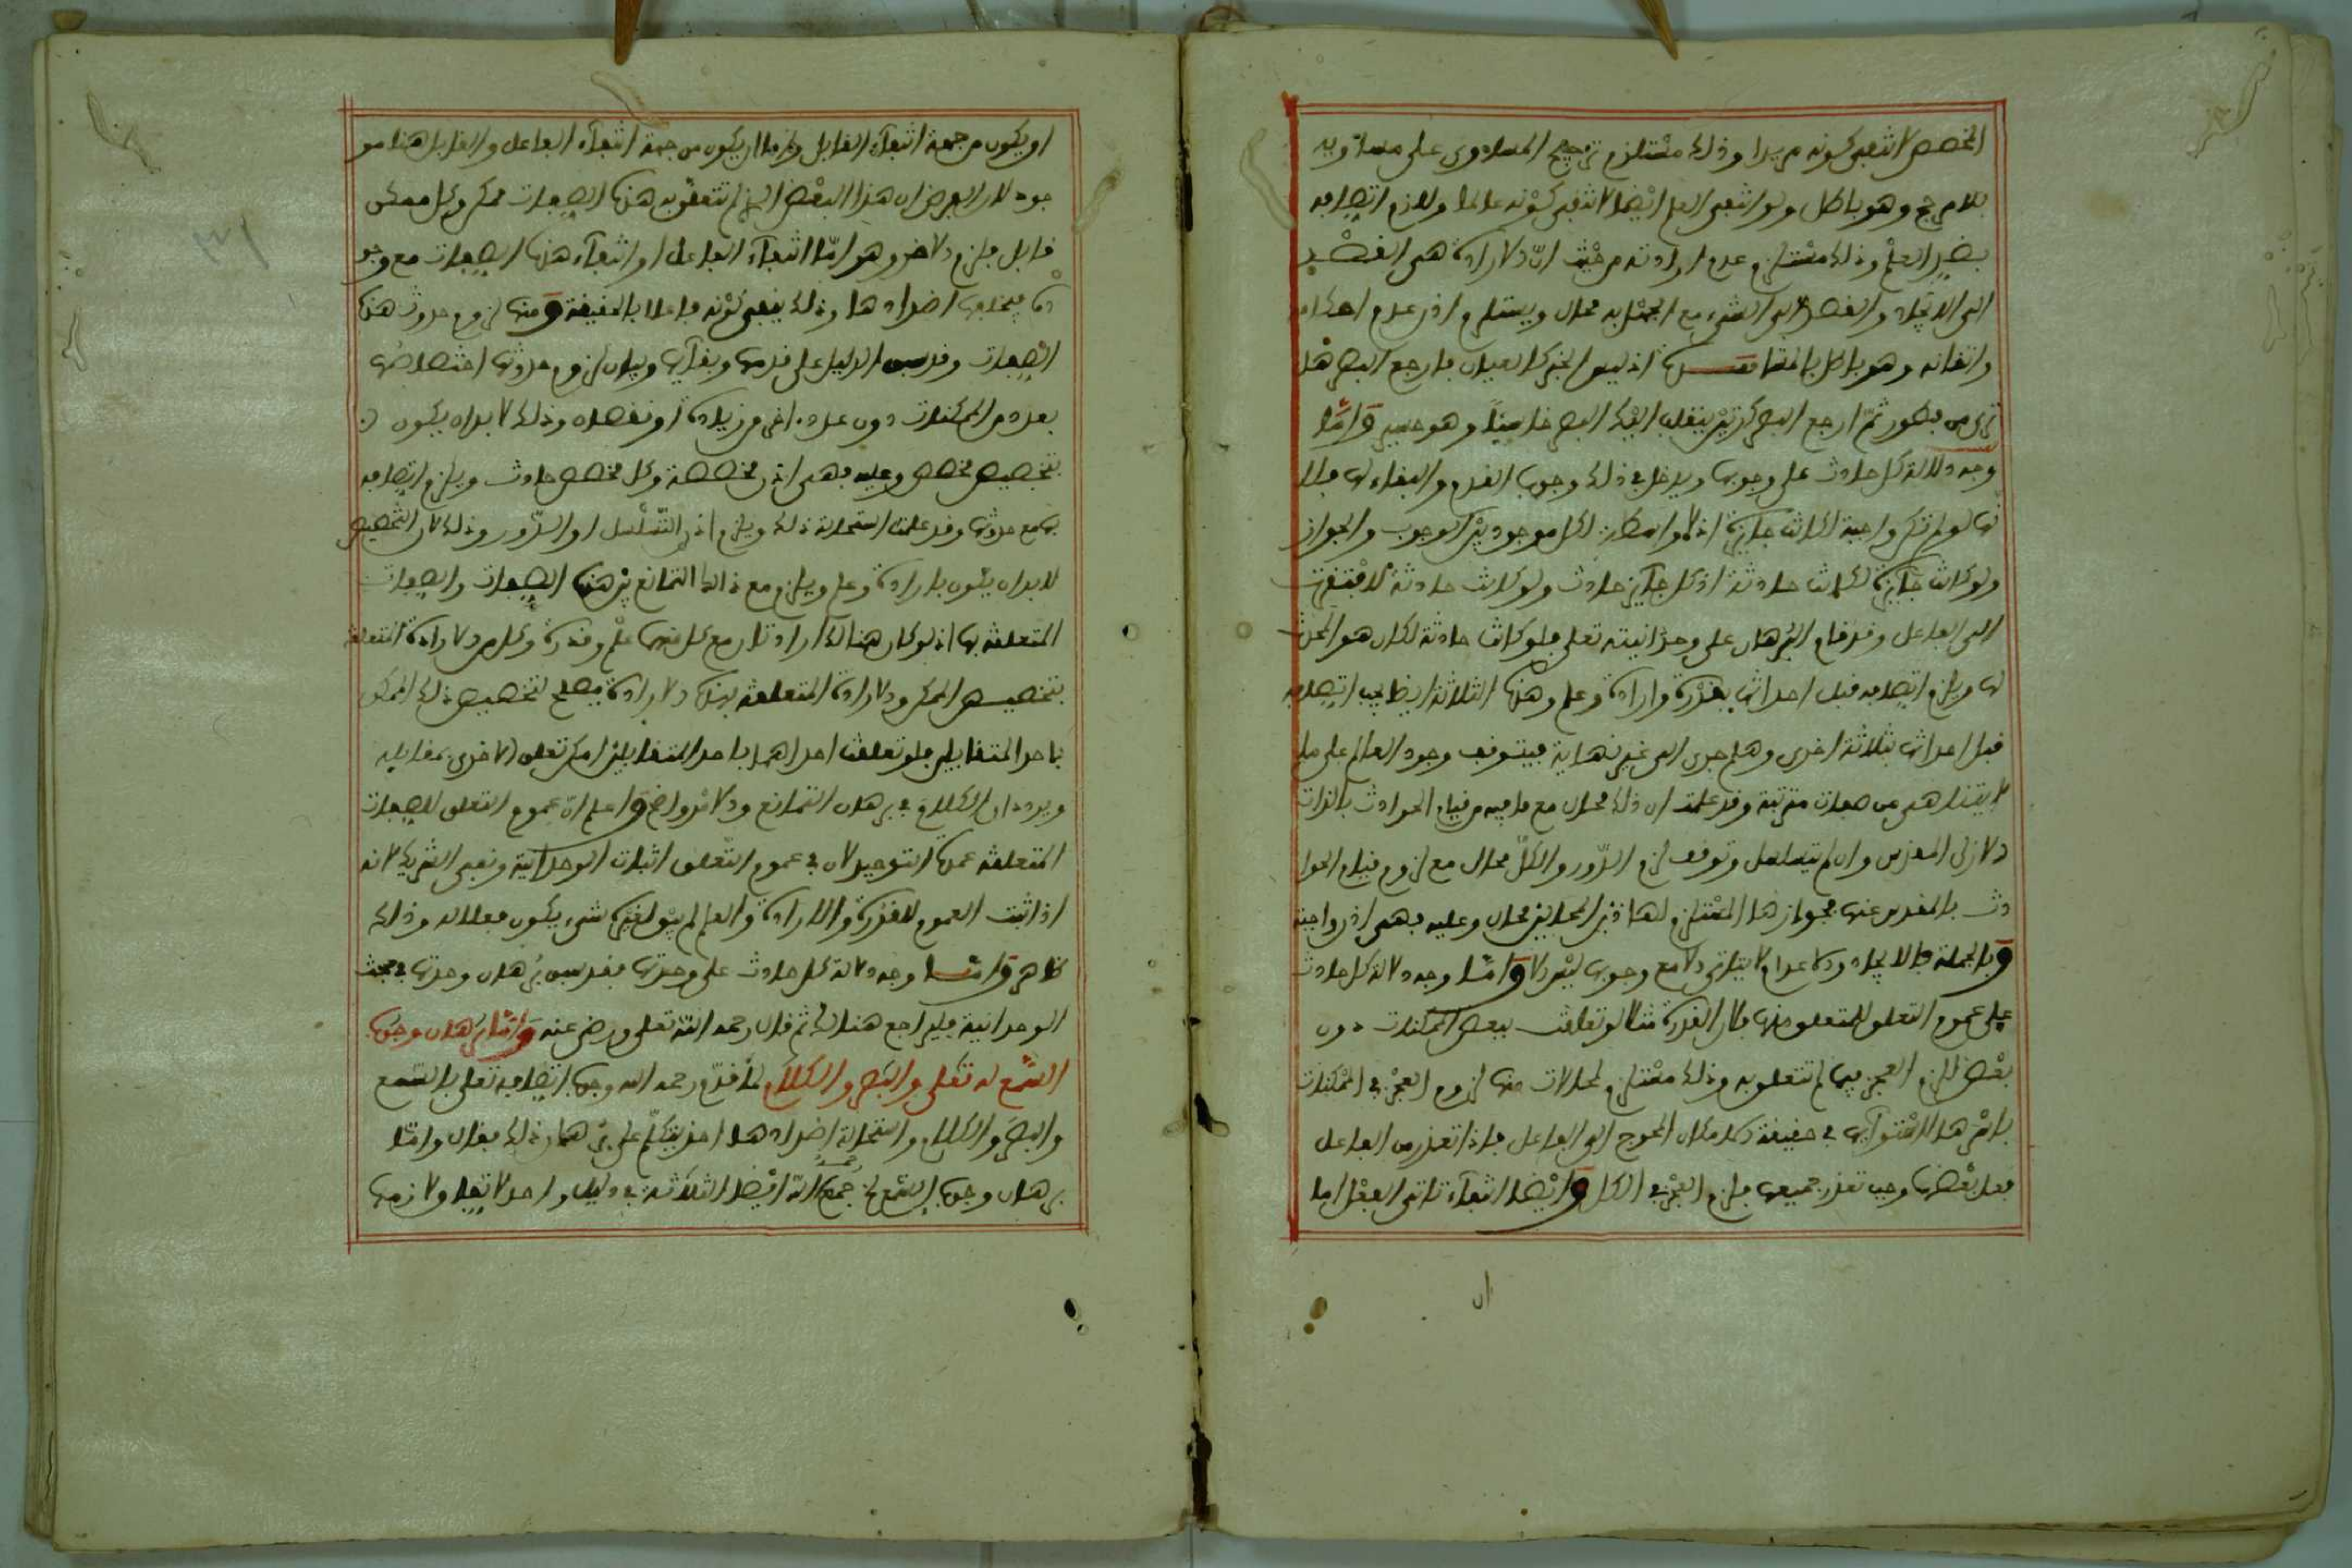 المخصص لانتفى كونه مريدا وذلك مستلزم ترجيح المساوى على مساويه
بلا مرجح وهو باطل ولو انتفى العلم ايضا لانتفى كونه عالما وللزم اتصافه
بضد العلم وذلك مستلزم عدم ارادته من حيث ان الارادة هى القصد
الى الايجاد والقصد الى الشىء مع الجهل به محال ويستلزم اذن عدم احكامه
واتقانه وهو باطل بالمشاهدة اذ ليس الخبر كالعيان فارجع البصر هل
ترى من فطور ثم ارجع البصر كرتين ينقلب اليك البصر خاسئا وهو حسير واما
وجه دلالة كل حادث على وجوبها ويدخل فى ذلك وجوب القدم والبقاء لها فلا
نها لو لم تكن واجبة لكانت جائزة اذ لا واسطة لكل موجود بين الوجوب والجواز
ولو كانت جائزة لكانت حادثة اذ كل جائز حادث ولو كانت حادثة لافتقرت
الى الفاعل وقد قام البرهان على وحدانيته تعلى فلو كانت حادثة لكان هو المحدث
لها ويلزم اتصافه قبل احداثها بقدرة وارادة وعلم وهذه الثلاثة ايضا يجب اتصافه
قبل احداثها بثلاثة اخرى وهلم جرى الى غير نهاية فيتوقف وجود العالم على ما
لا يتناهى من صفات مترتبة وقد علمت ان ذلك محال مع ما فيه من قيام الحوادث بالذات
الازلى المقدس وان لم يتسلسل وتوقف لزم الدور والكل محال مع لزوم قيام الحوا
دث بالمقدس عنها فجوازها المستلزم لهاذين المحالين محال وعليه فهى اذن واجبة
وبالجملة فالايجاد والاعدام لا يتاتى الا مع وجوب ليس الا واما وجه دلالة كل حادث
على عموم التعلق للمتعلق منها فلان القدرة مثلا لو تعلقت ببعض الممكنات دون
بعض للزم العجز فيما لم تتعلق به وذلك مستلزم لمحالات منها لزوم العجز فى الممكنات
باسرها لاستوائها فى حقيقة الامكان المحوج الى الفاعل فاذا تعذر من الفاعل
فعل بعضها وجب تعذر جميعها فيلزم العجز فى الكل وايضا انتفاء تاتى الفعل اما
ان
او يكون من جهة انتفاء القابل واما ان يكون من جهة انتفاء الفاعل والقابل هنا مو
جود لان الفرض ان هذا البعض الذى لم تتعلق به هذه الصفات ممكن وكل ممكن
قابل فلزم الاخر وهو اما انتفاء الفاعل او انتفاء هذه الصفات مع وجو
ده فيخلفها اضدادها وذلك ينفى كونه فاعلا بالحقيقة ومنها لزوم حدوث هذه
الصفات وقد سبق الدليل على قدمها وبقائها وبيان لزوم حدوثها اختصاصها
بعدد من الممكنات دون عدد اخر من زيادة او نقصان وذلك لا بد ان يكون
بتخصيص مخصص وعليه فهى اذن مخصصة وكل مخصص حادث ويلزم اتصافه
بها مع حدوثها وقد علمت استحالة ذلك ويلزم اذن التسلسل او الدور وذلك لان التخصيص
لا بد ان يكون بارادة وعلم ويلزم مع ذلك التمانع بين هذه الصفات والصفات
المتعلقة بها اذ لو كان هنالك ارادتان مع كل منها علم وقدرة وكل من الارادة المتعلقة
بتخصيص الممكن والارادة المتعلقة بهذه الارادة يصلح لتخصيص ذلك الممكن
باحد المتقابلين فلو تعلقت احداهما باحد المتقابلين امكن تعلق الاخرى بمقابله
ويرد الكلام فى برهان التمانع والامر واضح واعلم ان عموم التعلق للصفات
المتعلقة عمدة التوحيد لان فى عموم التعلق اثبات الوحدانية ونفى الشريك لانه
اذا ثبت العموم للقدرة والارادة والعلم لم يبق لغيره شىء يكون فعلا له وذلك
ظاهر واما وجه دلالة كل حادث على وحدتها فقد سبق برهان وحدتها فى مبحث
الوحدانية فليراجع هنالك ثم قال رحمه الله تعلى ورضى عنه واما برهان وجوب
السمع له تعلى والبصر والكلام لما قدم رحمه الله وجوب اتصافه تعلى بالسمع
والبصر والكلام واستحالة اضدادها اخذ يتكلم على برهان ذلك فقال واما
برهان وجوب السمع الخ جمع رحمه الله ايضا الثلاثة فى دليل واحد لاتحاد لازمها